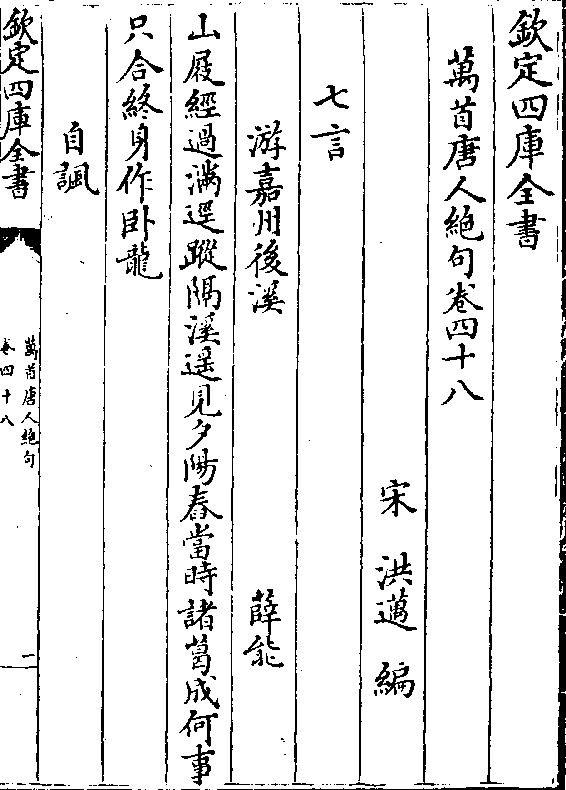 欽定四庫全書
萬首唐人絶句卷四十八
宋 洪邁 編
七言
游嘉州後溪 薛能
山屐經過滿逕蹤隔溪遥見夕陽舂當時諸葛成何事
只合終身作卧龍
自諷
欽定四庫全書
萬首唐人絶句
卷四十八
一